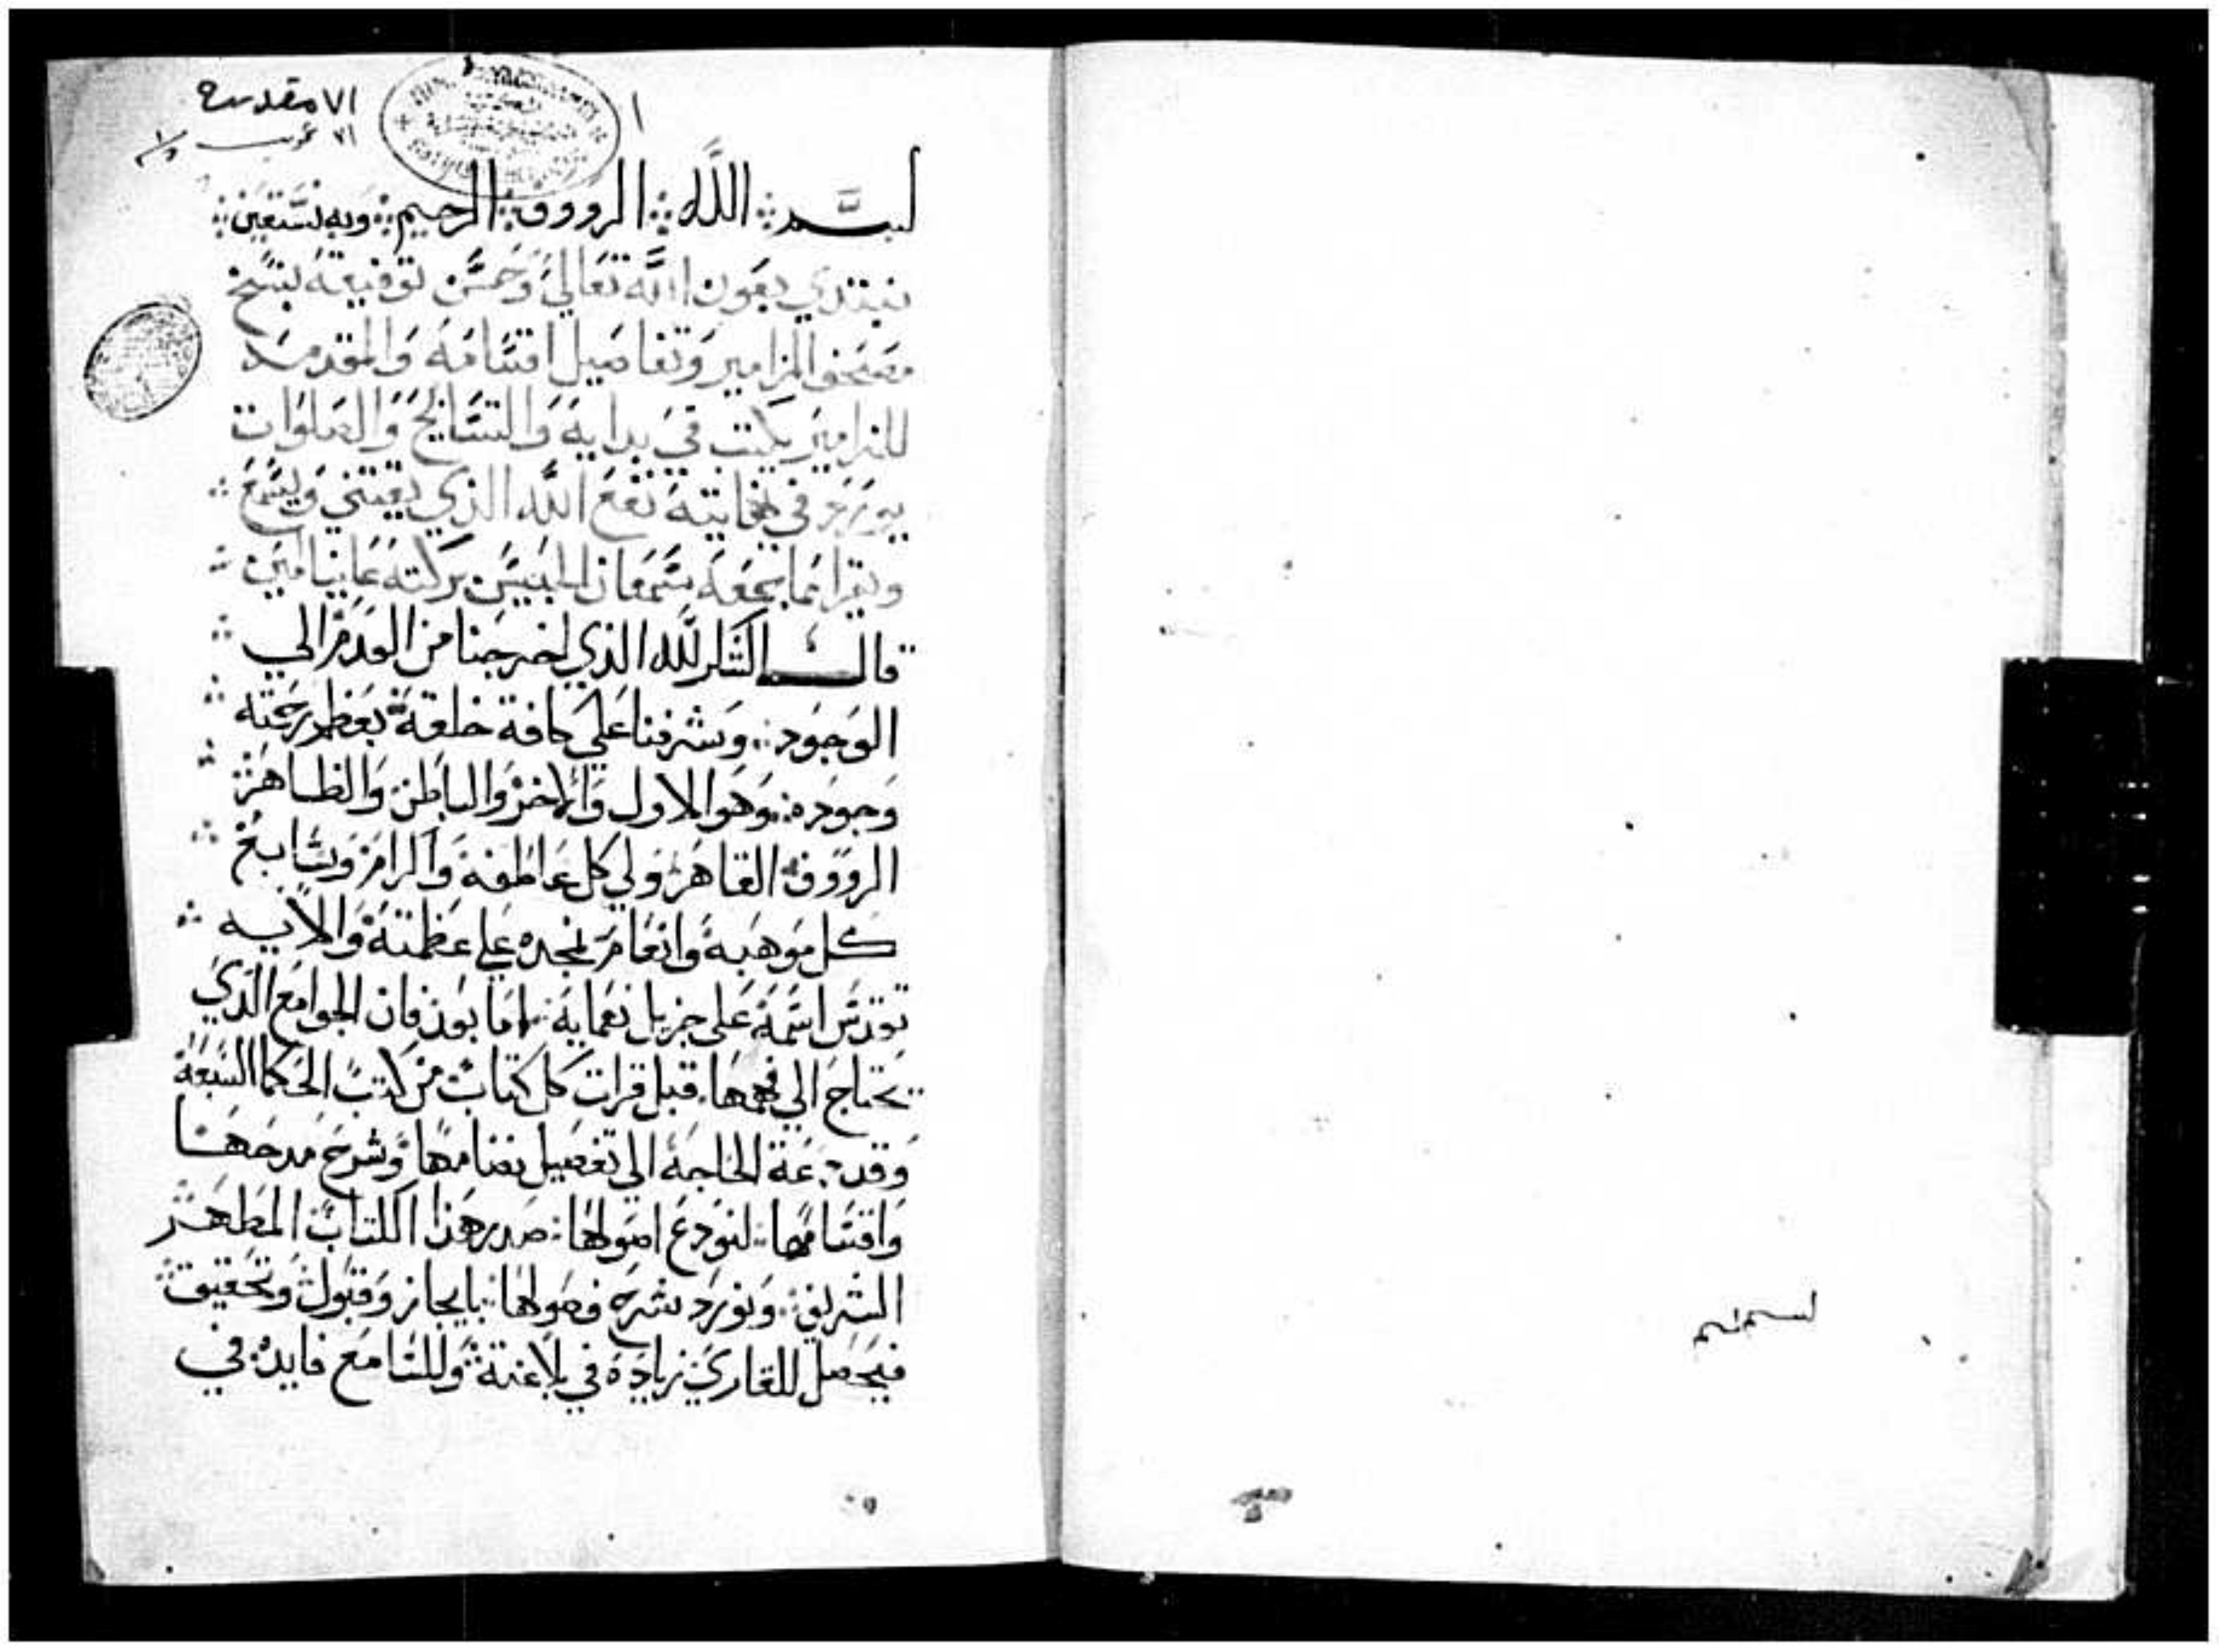 ٧١ مقدسه
١
بسم الله الرووف الرحيم وبه نستعين
نبتدي بعون الله تعالي وحسن توفيقه بنسخ
مصحف المزامير وتفاصيل اقسامه والمقدمه
للمزامير يكتب في بدايه والتسابيح والصلوات
في نهايته نفع الله الذي يقتني ويسمع
ويقرا بما سمعان الحبيس بركته علينا امين
قال الشكر لله الذي اخرجنا من العدم الي
الوجود وشرفنا علي كافة خلقة بعظم رحمته
وجوده وهو الاول والاخر والباطن والظاهر
الرووف القاهر ولي كل عاطفه واكرام وسابغ
كل موهبة وانعام نمجده علي عظمته والايه
تقدس اسمه علي جزيل نعمايه اما بعد فان الجوامع الذي
تحتاج الي فهمها قبل قرات كل كتاب من كتب الحكما السبعة
وقد دعة الحاجه الي تفصيل نضامها وشرح مدحها
واقسامها لنودع اصولها صدر هذا الكتاب المطهر
الشريف ونورد شرح فصولها بايجاز وقبول وتحقيق
فيحصل للقاري زيادة في بلاغته وللسامع فايده في